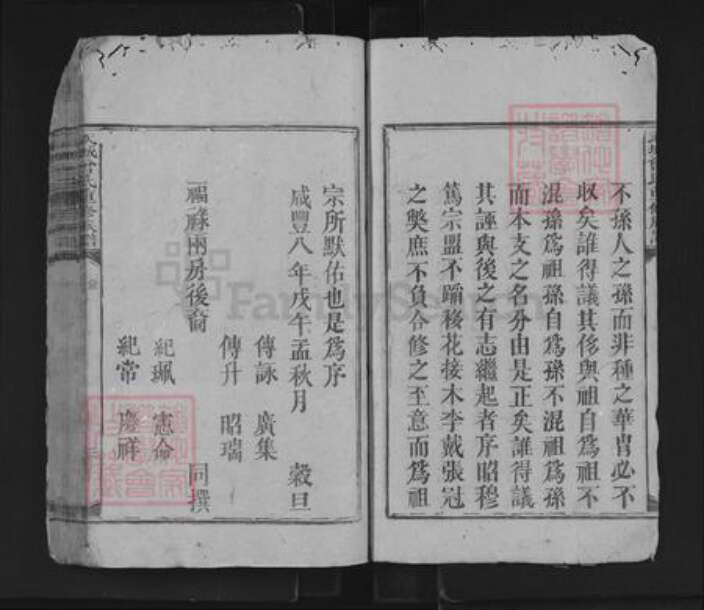 不孫人之孫而非種之華胄必不
収矣誰得議其侈與祖自為祖不
混孫為祖孫自為孫不混祖為孫
而本支之名分由是正矣誰得議
其誣與後之有志繼起者序昭穆
篤宗盟不蹈移花接木李戴張冠
之獘庶不負合修之至意而為祖
宗所默佑也是為序
咸豐八年戊午孟秋月 穀旦
傳詠 廣集
傳升 昭瑞
福祿兩房後裔 同撰
紀珮 憲命
紀常 慶祥
氏重修族譜
FamilySearch